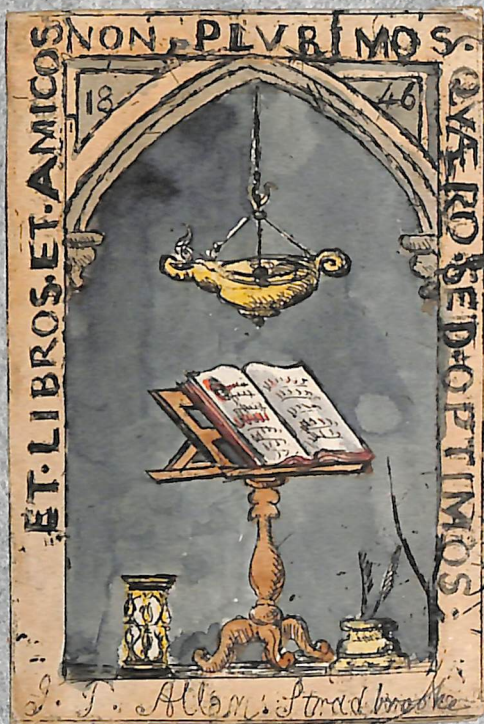 ET·LIBROS·ET·AMICOS
NON PLVRIMOS
QVÆRO·SED·OPTIMOS·
18 46
J. T. Allom: Stradbrooke